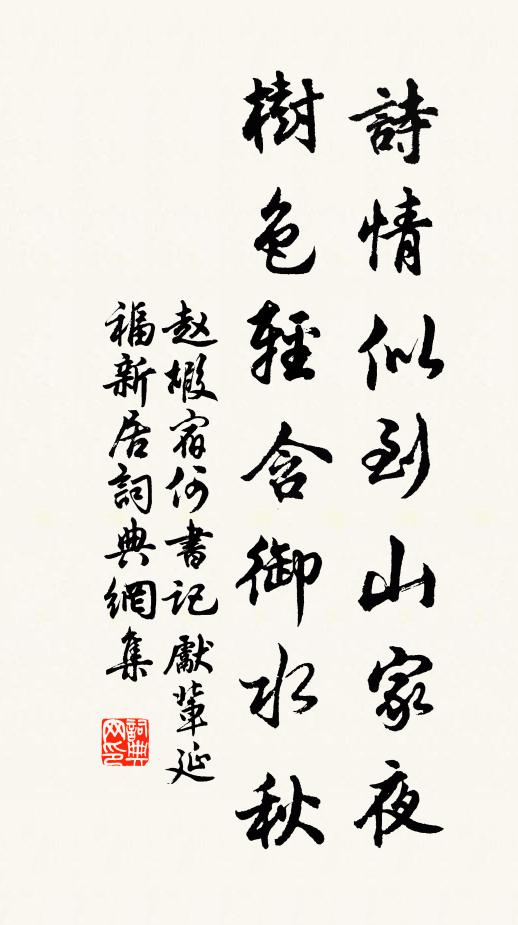 詩情似到山家夜
樹色輕含御水秋
赵嘏宿何書記獻輦延
福新居詞典網集
詞典網印